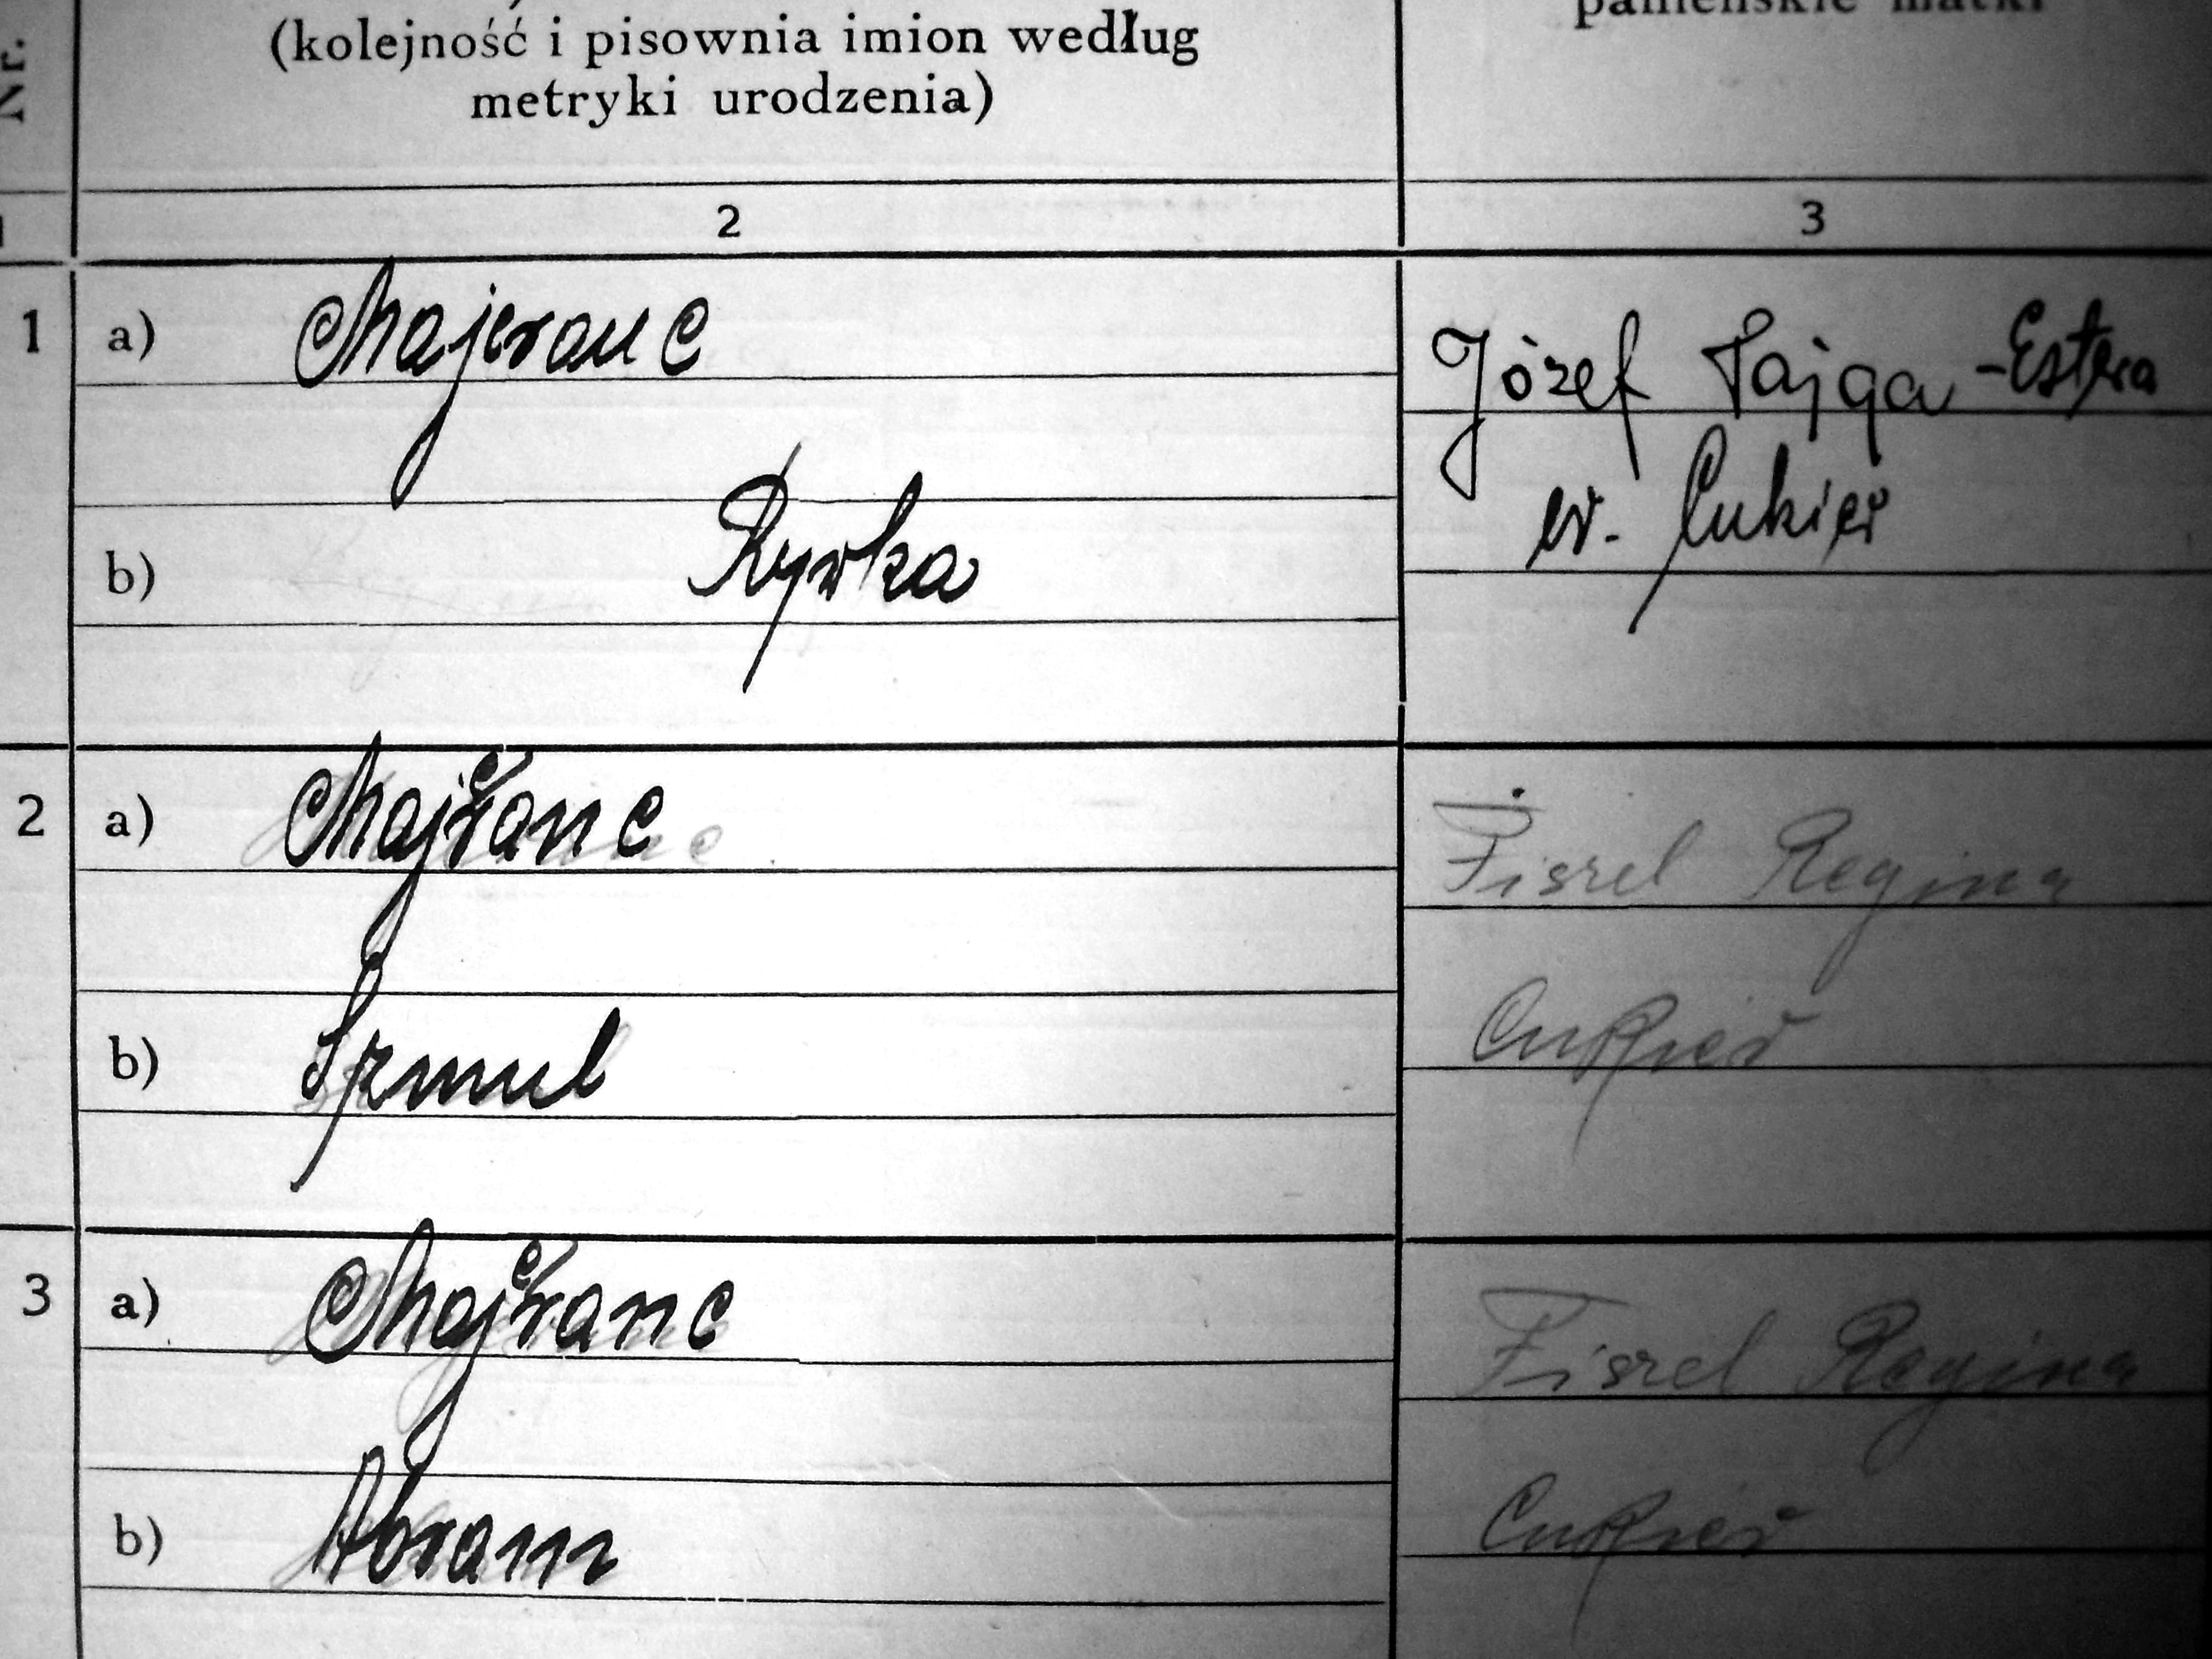 Nr.
(kolejność i pisownia imion według
metryki urodzenia)
panieńskie matki
2
3
1
a)
Majeranc
b)
Rywka
Józef Fajga-Estera
Cukier
2
a)
Majeranc
b)
Szmul
Fiszel Regina
Cukier
3
a)
Majeranc
b)
Abram
Fiszel Regina
Cukier